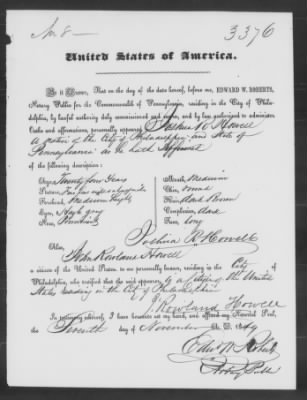 No 8
3376
United States of America.
Be it Known, That on the day of the date hereof, before me, EDWARD W. ROBERTS,
Notary Public for the Commonwealth of Pennsylvania, residing in the City of Phila-
delphia, by lawful authority duly commissioned and sworn, and by law authorized to administer
Oaths and affirmations, personally appeared Joshua R. Howell
A native of the City of Philadelphia and State of
Pennsylvania as he hath Affirmed
of the following description:
Age, Twenty four Years
Stature, five feet
Forehead, Medium Height
Eyes, gray
Nose, Prominent
Mouth, Medium
Chin, round
Hair, dark Brown
Complexion, dark
Face, Long
Joshua R. Howell
Also,
John Rowland Howell
a citizen of the United States to me personally known, residing in the City of
Philadelphia, who testified that the said opposent is a citizen of the United
States residing in the City of Philadelphia
J. Rowland Howell
In testimony whereof, I have hereunto set my hand, and affixed my Notarial Seal,
the Seventh day of November A. D. 1849
Edw. W. Roberts
Notary Public